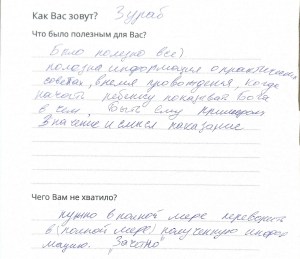 Как Вас зовут? Зураб
Что было полезным для Вас?
Было полезно все)
полезна информация о практичных
советах, время провождения, когда
начать ребенку показывать Бога
в чем, быть ему примером
Значение и смысл наказание
Чего Вам не хватило?
нужно в полной мере переварить
в (полной мере) полученную инфор
мацию. "Зачетно"